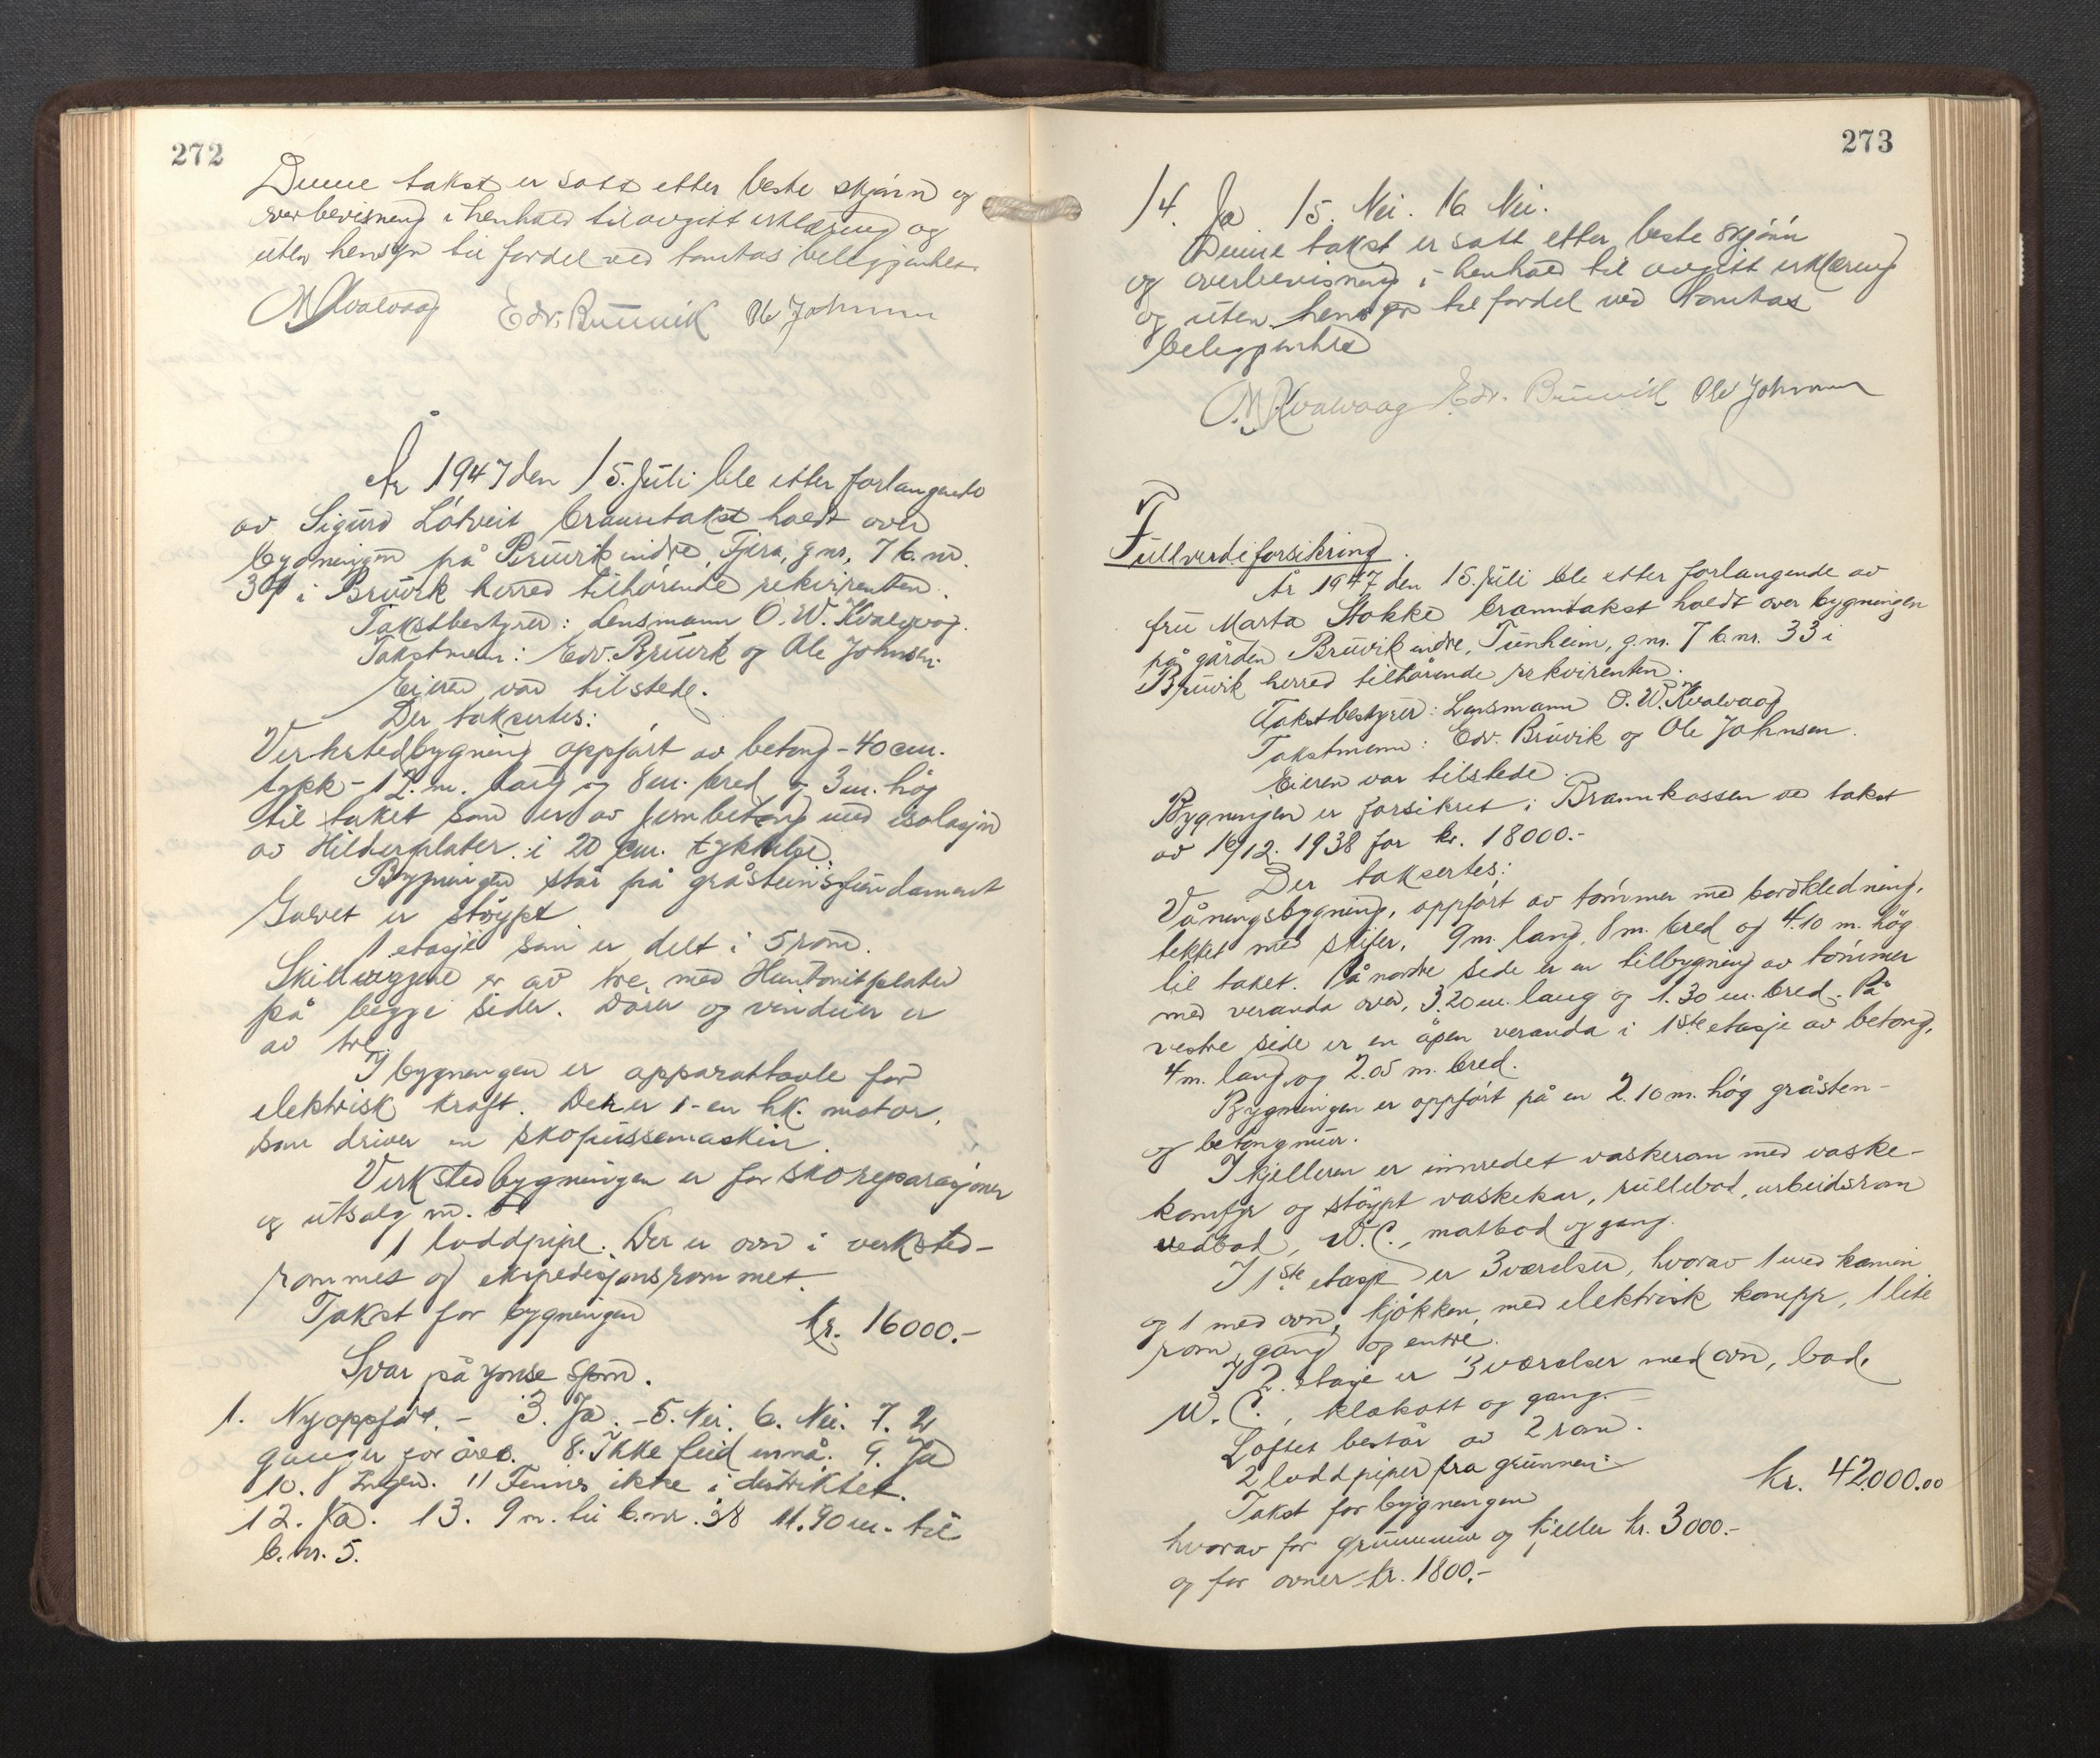 272
Denne takst er satt etter beste skjønn og
overbevisning i henhold til avgitt erklæring og
uten hensyn til fordel ved tomtas beliggenhet.
O. W. Kvalvaag Edv. Bruvik Ole Johnsen
År 1947 den 15. juli ble etter forlangende
av Sigurd Lótveit branntakst holdt over
bygningen på Bruvik indre, Fjera, g.nr. 7 b.nr.
37 i Bruvik herred tilhørende rekvirenten.
Takstbestyrer: Lensmann O. W. Kvalvaag.
Takstmenn: Edv. Bruvik og Ole Johnsen.
Eieren var tilstede.
Der taksertes:
Verkstedbygning oppført av betong - 40 cm.
tykk - 12. m. lang og 8 m. bred og 3 m. høg
til taket som er av jernbetong med isolasjon
av Hilderplater i 20 cm. tykkelse.
Bygningen står på gråsteinsfundament
Golvet er støypt
1 etasje som er delt i 5 rom.
Skilleveggene er av tre med Huntonitplater
på begge sider. Dører og vinduer er
av tre.
I bygningen er apparattavle for
elektrisk kraft. Det er 1 - en hk. motor,
som driver en skopussemaskin.
Verkstedbygningen er for skoreparasjoner
og utsalg m.
1 loddpipe. Der er ovn i verksted-
rommet og ekspedisjonsrommet.
Takst for bygningen kr. 16000.-
Svar på spm.
1. Nyoppført. - 3. Ja. - 5. Nei. 6. Nei. 7. 2
ganger for året. 8. Ikke feid ennå. 9. Ja
10. Ingen. 11 Finnes ikke i distriktet.
12. Ja. 13. 9 m. til b.nr. 38 11.90 m. til
b.nr. 5.
273
14. Ja 15. Nei. 16 Nei.
Denne takst er satt etter beste skjønn
og overbevisning i henhold til avgitt erklæring
og uten hensyn til fordel ved tomtas
beliggenhed
O. W. Kvalvaag Edv. Bruvik Ole Johnsen
Fullverdiforsikring.
År 1947 den 15. juli ble etter forlangende av
fru Marta Stokke branntakst holdt over bygningen
på gården Bruvik indre, Tunheim, g.nr. 7 b.nr. 33 i
Bruvik herred tilhørende rekvirenten.
Takstbestyrer: Lensmann O. W. Kvalvaag
Takstmenn: Edv. Bruvik og Ole Johnsen.
Eieren var tilstede.
Bygningen er forsikret i Brannkassen ved takst
av 16/12. 1938 for kr. 18000.-
Der taksertes:
Våningsbygning, oppført av tømmer med bordkledning,
tekket med skifer, 9 m. lang, 8 m. bred og 4.10 m. høg
til taket. På nordre side er en tilbygning av tømmer
med veranda over, 3.20 m. lang og 1.30 m. bred. På
vestre side er en åpen veranda i 1ste etasje av betong,
4 m. lang og 2.05 m. bred.
Bygningen er oppført på en 2.10 m. høg gråsten-
og betongmur.
I kjelleren er innredet vaskerom med vaske-
komfyr og støypt vaskekar, rullebod, arbeidsrom
vedbod, W.C., matbod og gang.
I 1ste etasje er 3 værelser, hvorav 1 med kamin
og 1 med ovn, kjøkken, med elektrisk komfyr, 1 lite
rom, gang og entre.
I 2. etasje er 3 værelser med ovn, bad,
W.C., klokott og gang.
Loftet består av 2 rom.
2 loddpiper fra grunnen.
Takst for bygningen kr. 42.000.00
hvorav for grunnmur og kjeller kr. 3000.-
og for ovner kr. 1800.-